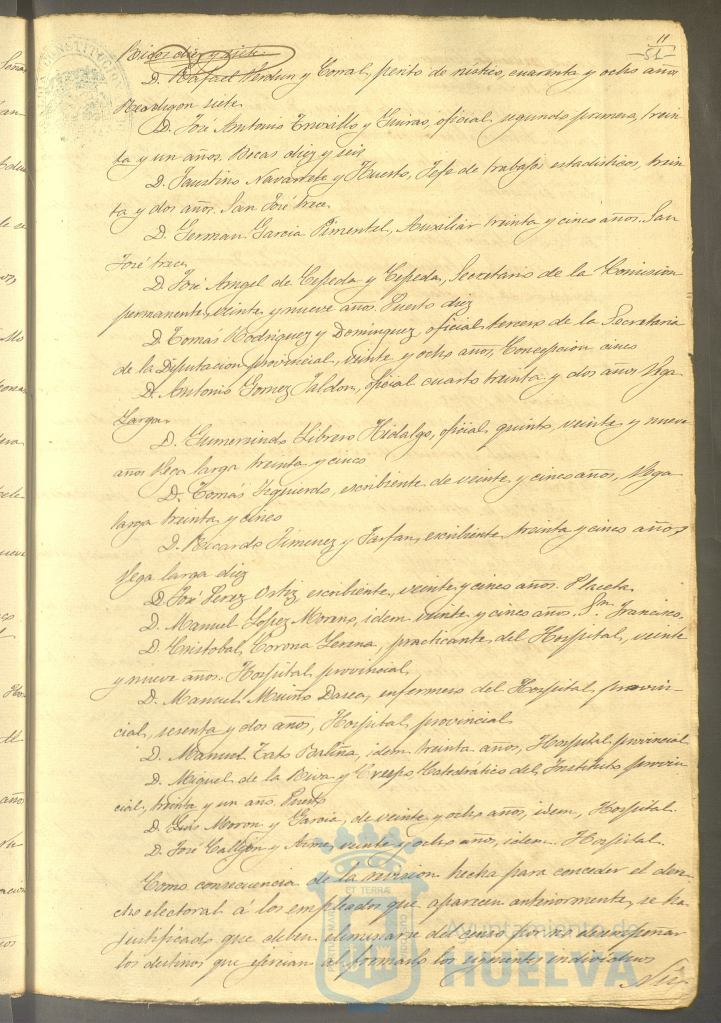 11
51
diez y siete
D. Rafael Verdun y Corral, perito de rústico, cuarenta y ocho años
siete
D. José Antonio Truxillo y, oficial segundo primero, trein
ta y un años. Becas diez y seis
D. Faustino Navarrete y Huerto, Jefe de trabajos estadisticos, trein
ta y dos años. San José trece
D. German Garcia Pimentel, Auxiliar treinta y cinco años. San
José trece
D. José Angel de Cepeda y Cepeda, Secretario de la Comision
permanente, veinte y nueve años. Puerto diez
D. Tomás Rodriguez y Dominguez oficial tercero de la Secretaria
de la Diputacion provincial, veinte y ocho años, Concepcion cinco
D. Antonio Gomez Jaldon, oficial cuarto treinta y dos años Vega
Larga
D. Gumersindo Librero Hidalgo, oficial quinto, veinte y nueve
años Vega larga treinta y cinco
D. Tomás Izquierdo, escribiente de veinte y cinco años, Vega
larga treinta y cinco
D. Ricardo Jimenez y Farfan, escribiente treinta y cinco años,
Vega larga diez
D. José Perez Ortiz, escribiente, veinte y cinco años. Placeta
D. Manuel Lopez Moreno, idem veinte y cinco años. San Francisco.
D. Cristobal Corona, practicante del Hospital, veinte
y nueve años. Hospital provincial
D. Manuel, enfermero del Hospital provin-
cial, sesenta y dos años, Hospital provincial
D. Manuel Tato, idem treinta años, Hospital provincial
D. Miguel de la Riva y Crespo Catedrático del Instituto provin
cial, treinta y un año. Puerto
D. Luis Moron y Garcia, de veinte y ocho años, idem, Hospital.
D. José Callejon y, veinte y ocho años, idem. Hospital.
Como consecuencia de la revision hecha para conceder el dere-
cho electoral á los empleados que aparecen anteriormente, se ha
justificado que deben eliminarse del censo por no desempeñar
los destinos que ejercian al formarlo los siguientes individuos
Ayuntamiento de
HUELVA